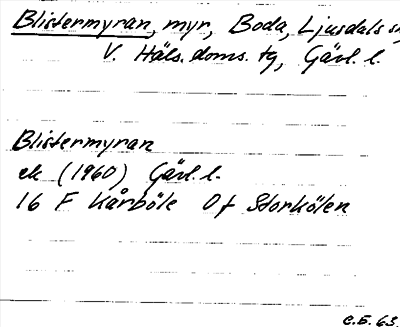 Blistermyran, myr, Boda, Ljusdals sn
V. Häls. doms. tg, Gävl. l.
Blistermyran
ek (1960) Gävl. l.
16 F Kårböle Of Storkölen
C.E. 63